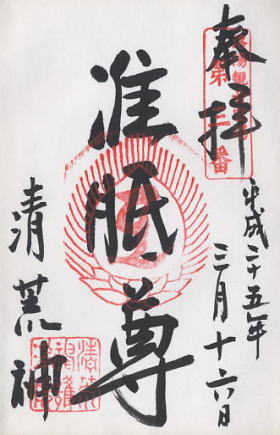 奉拝
第三番
平成二十五年
三月十六日
准胝尊
清荒神